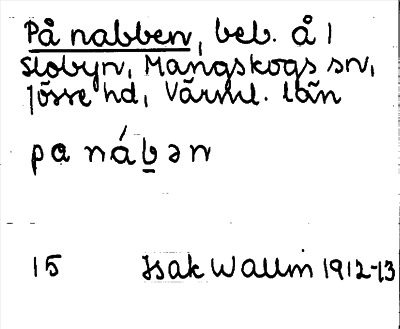 På nabben, beb. å |
Slobyn, Mangskogs sn,
Jösse hd, Värml. län
pa náb̠ən
15 Isak Wallin 1912-13